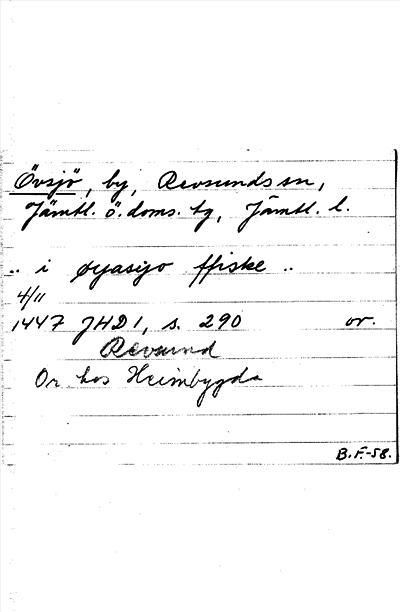 Övsjö, by, Revsunds sn,
Jämtl. ö. doms. tg, Jämtl. l.
.. i øyasijo ffiske ..
4/11
1447 JHD1, s. 290 or.
Revsund
Or. hos Heimbygda
B.F.-58.